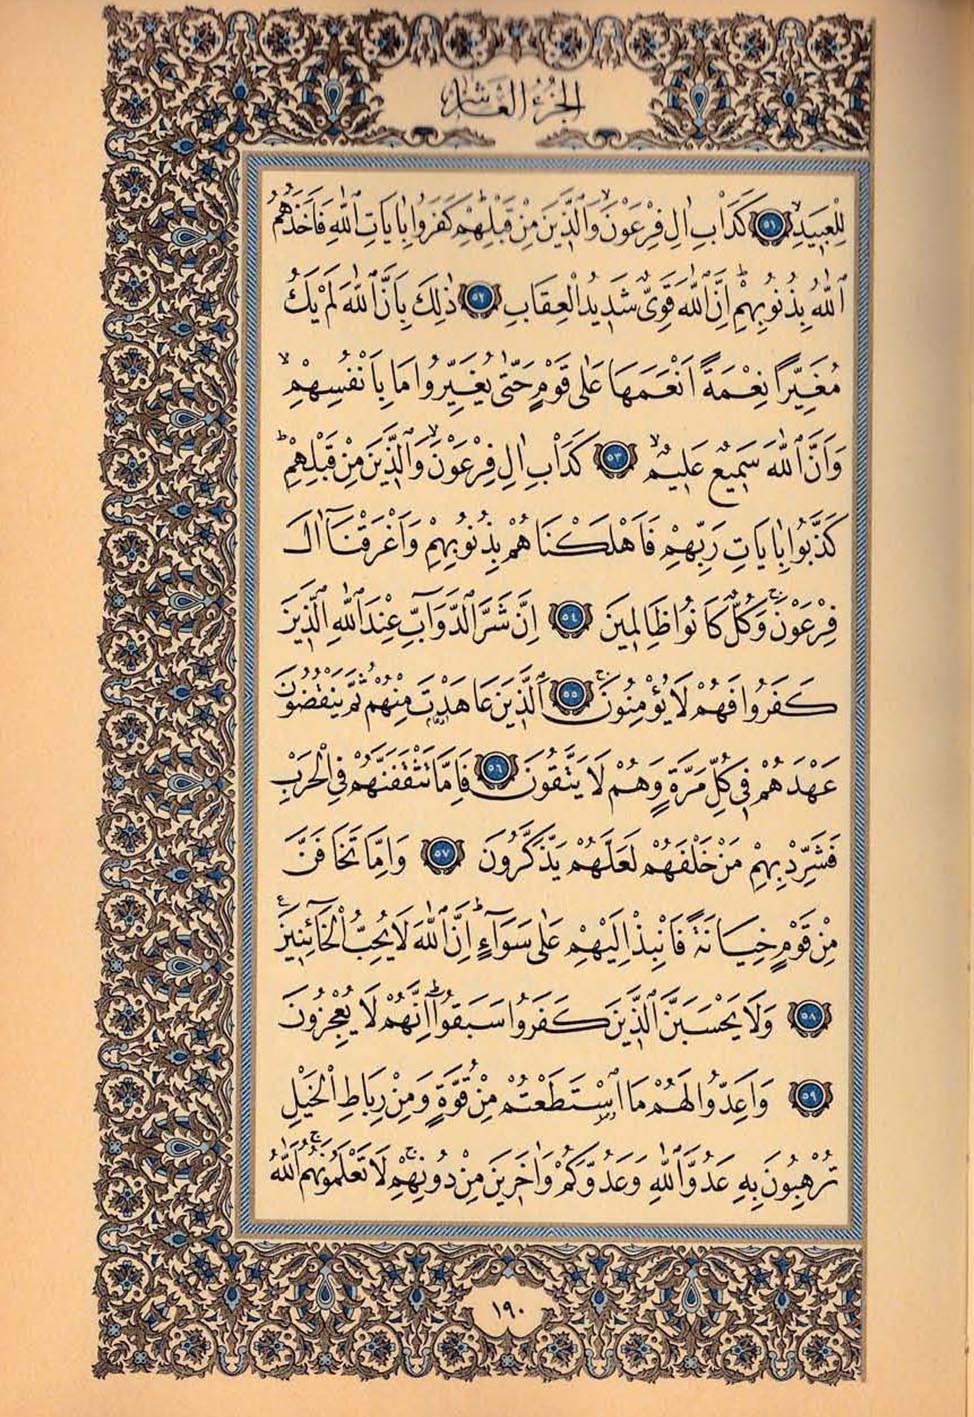 الجزء العاشر
لِلْعَبٖيدِۙ ﴿٥١﴾ كَدَاْبِ اٰلِ فِرْعَوْنَۙ وَالَّذٖينَ مِنْ قَبْلِهِمْؕ كَفَرُوا بِاٰيَاتِ اللّٰهِ فَاَخَذَهُمُ
اللّٰهُ بِذُنُوبِهِمْؕ اِنَّ اللّٰهَ قَوِىٌّ شَدٖيدُ الْعِقَابِ ﴿٥٢﴾ ذٰلِكَ بِاَنَّ اللّٰهَ لَمْ يَكُ
مُغَيِّرًا نِعْمَةً اَنْعَمَهَا عَلٰى قَوْمٍ حَتّٰى يُغَيِّرُوا مَا بِاَنْفُسِهِمْۙ
وَاَنَّ اللّٰهَ سَمٖيعٌ عَلٖيمٌۙ ﴿٥٣﴾ كَدَاْبِ اٰلِ فِرْعَوْنَۙ وَالَّذٖينَ مِنْ قَبْلِهِمْؕ
كَذَّبُوا بِاٰيَاتِ رَبِّهِمْ فَاَهْلَكْنَاهُمْ بِذُنُوبِهِمْ وَاَغْرَقْنَٓا اٰلَ
فِرْعَوْنَۚ وَكُلٌّ كَانُوا ظَالِمٖينَ ﴿٥٤﴾ اِنَّ شَرَّ الدَّوَٓابِّ عِنْدَ اللّٰهِ الَّذٖينَ
كَفَرُوا فَهُمْ لَا يُؤْمِنُونَۚ ﴿٥٥﴾ اَلَّذٖينَ عَاهَدْتَ مِنْهُمْ ثُمَّ يَنْقُضُونَ
عَهْدَهُمْ فٖى كُلِّ مَرَّةٍ وَهُمْ لَا يَتَّقُونَ ﴿٥٦﴾ فَاِمَّا تَثْقَفَنَّهُمْ فِى الْحَرْبِ
فَشَرِّدْ بِهِمْ مَنْ خَلْفَهُمْ لَعَلَّهُمْ يَذَّكَّرُونَ ﴿٥٧﴾ وَاِمَّا تَخَافَنَّ
مِنْ قَوْمٍ خِيَانَةً فَانْبِذْ اِلَيْهِمْ عَلٰى سَوَٓاءٍؕ اِنَّ اللّٰهَ لَا يُحِبُّ الْخَٓائِنٖينَࣖ
﴿٥٨﴾ وَلَا يَحْسَبَنَّ الَّذٖينَ كَفَرُوا سَبَقُواؕ اِنَّهُمْ لَا يُعْجِزُونَ
﴿٥٩﴾ وَاَعِدُّوا لَهُمْ مَا اسْتَطَعْتُمْ مِنْ قُوَّةٍ وَمِنْ رِبَاطِ الْخَيْلِ
تُرْهِبُونَ بِهٖ عَدُوَّ اللّٰهِ وَعَدُوَّكُمْ وَاٰخَرٖينَ مِنْ دُونِهِمْۚ لَا تَعْلَمُونَهُمْۚ اَللّٰهُ
١٩٠